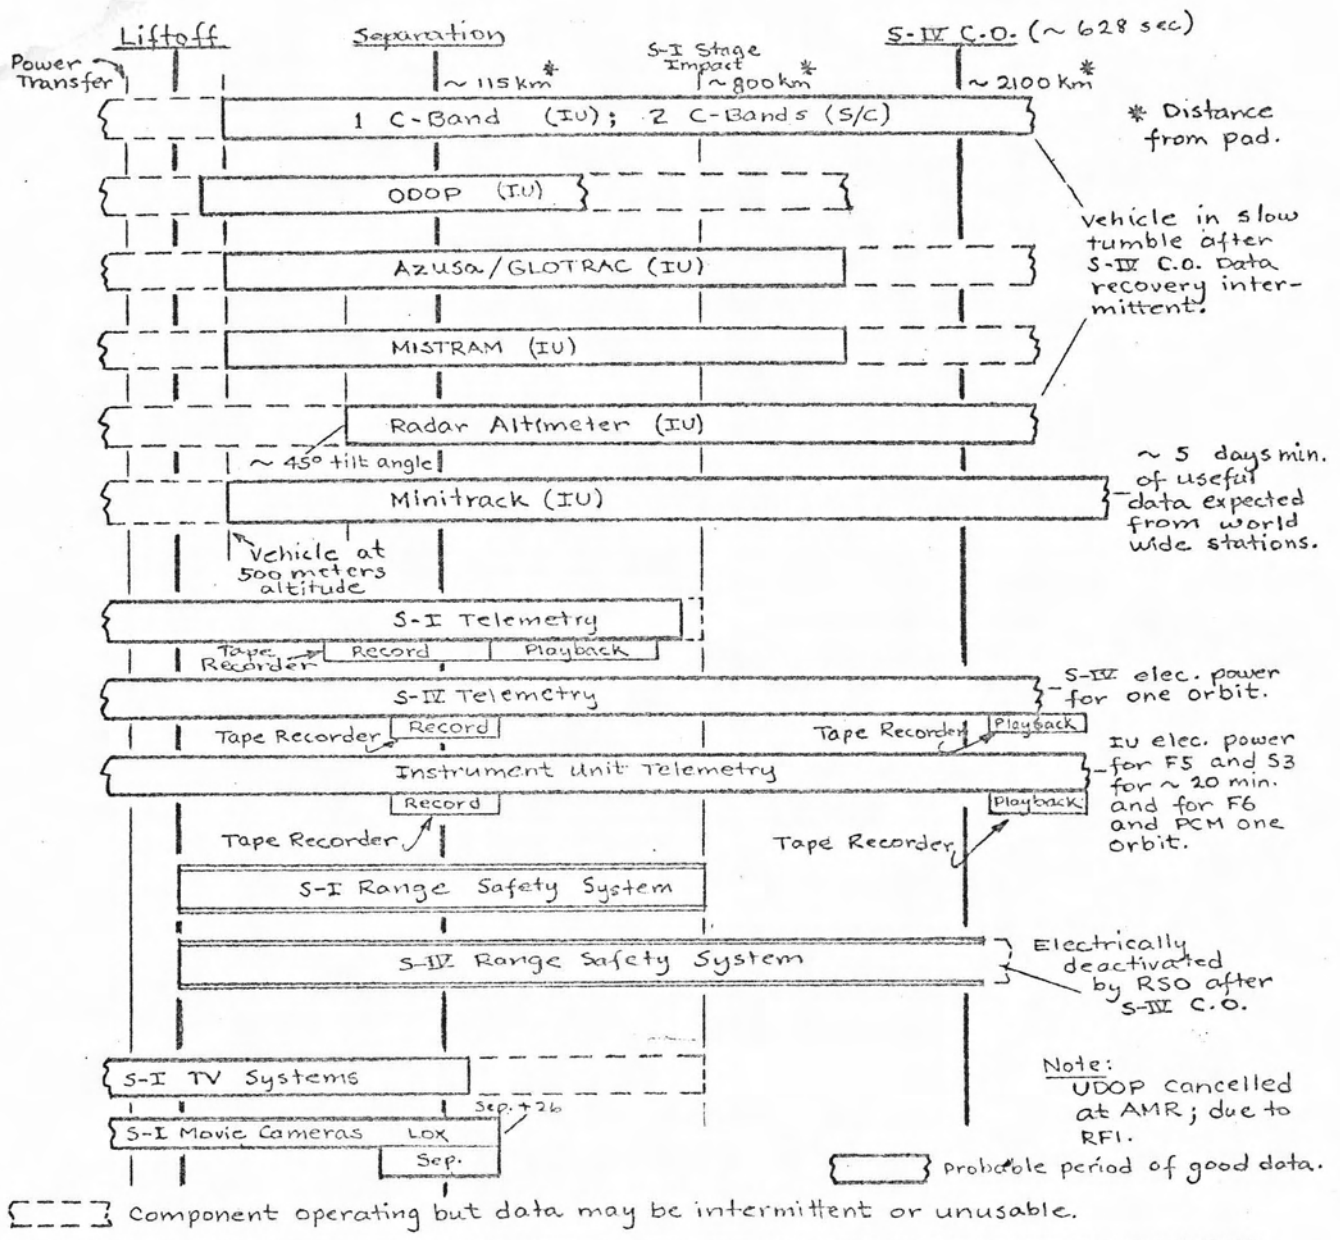 Liftoff
Separation
S-IV C.O. (~ 628 sec)
Power
Transfer
S-I Stage
Impact
~ 115 km*
~ 800 km*
~ 2100 km*
* Distance
from pad.
1 C-Band (IU); 2 C-Bands (S/C)
ODOP (IU)
Azusa/GLOTRAC (IU)
MISTRAM (IU)
Radar Altimeter (IU)
Vehicle in slow
tumble after
S-IV C.O. Data
recovery inter-
mittent.
~ 45° tilt angle
Minitrack (IU)
~ 5 days min.
of useful
data expected
from world
wide stations.
Vehicle at
500 meters
altitude
S-I Telemetry
Tape
Recorder
Record
Playback
S-IV Telemetry
S-IV elec. power
for one orbit.
Tape Recorder
Record
Tape Recorder
Playback
Instrument Unit Telemetry
IU elec. power
for F5 and S3
for ~ 20 min.
and for F6
and PCM one
orbit.
Record
Playback
Tape Recorder
Tape Recorder
S-I Range Safety System
S-IV Range Safety System
Electrically
deactivated
by RSO after
S-IV C.O.
S-I TV Systems
Sep. + 26
S-I Movie Cameras LOX
Sep.
Note:
UDOP cancelled
at AMR; due to
RFI.
Probable period of good data.
Component operating but data may be intermittent or unusable.